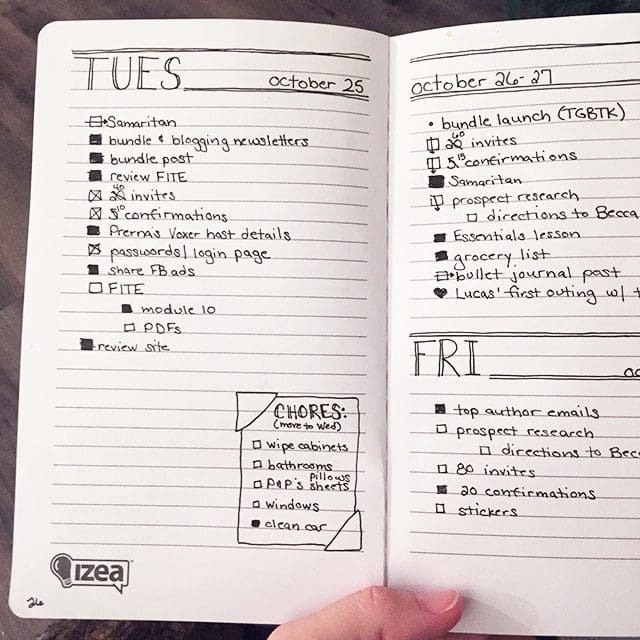 TUES october 25
Samaritan
bundle & blogging newsletters
bundle post
review FITE
20 40 invites
5 10 confirmations
Prerna's Voxer host details
passwords/login page
share FB ads
FITE
module 10
PDFs
review site
CHORES:
(move to Wed)
wipe cabinets
bathrooms
P&P's sheets pillows
windows
clean car
izea
26
october 26-27
bundle launch (TGBTK)
20 40 invites
5 10 confirmations
Samaritan
prospect research
directions to Becca
Essentials lesson
grocery list
bullet journal post
Lucas' first outing w/
FRI
top author emails
prospect research
directions to Becca
80 invites
20 confirmations
stickers